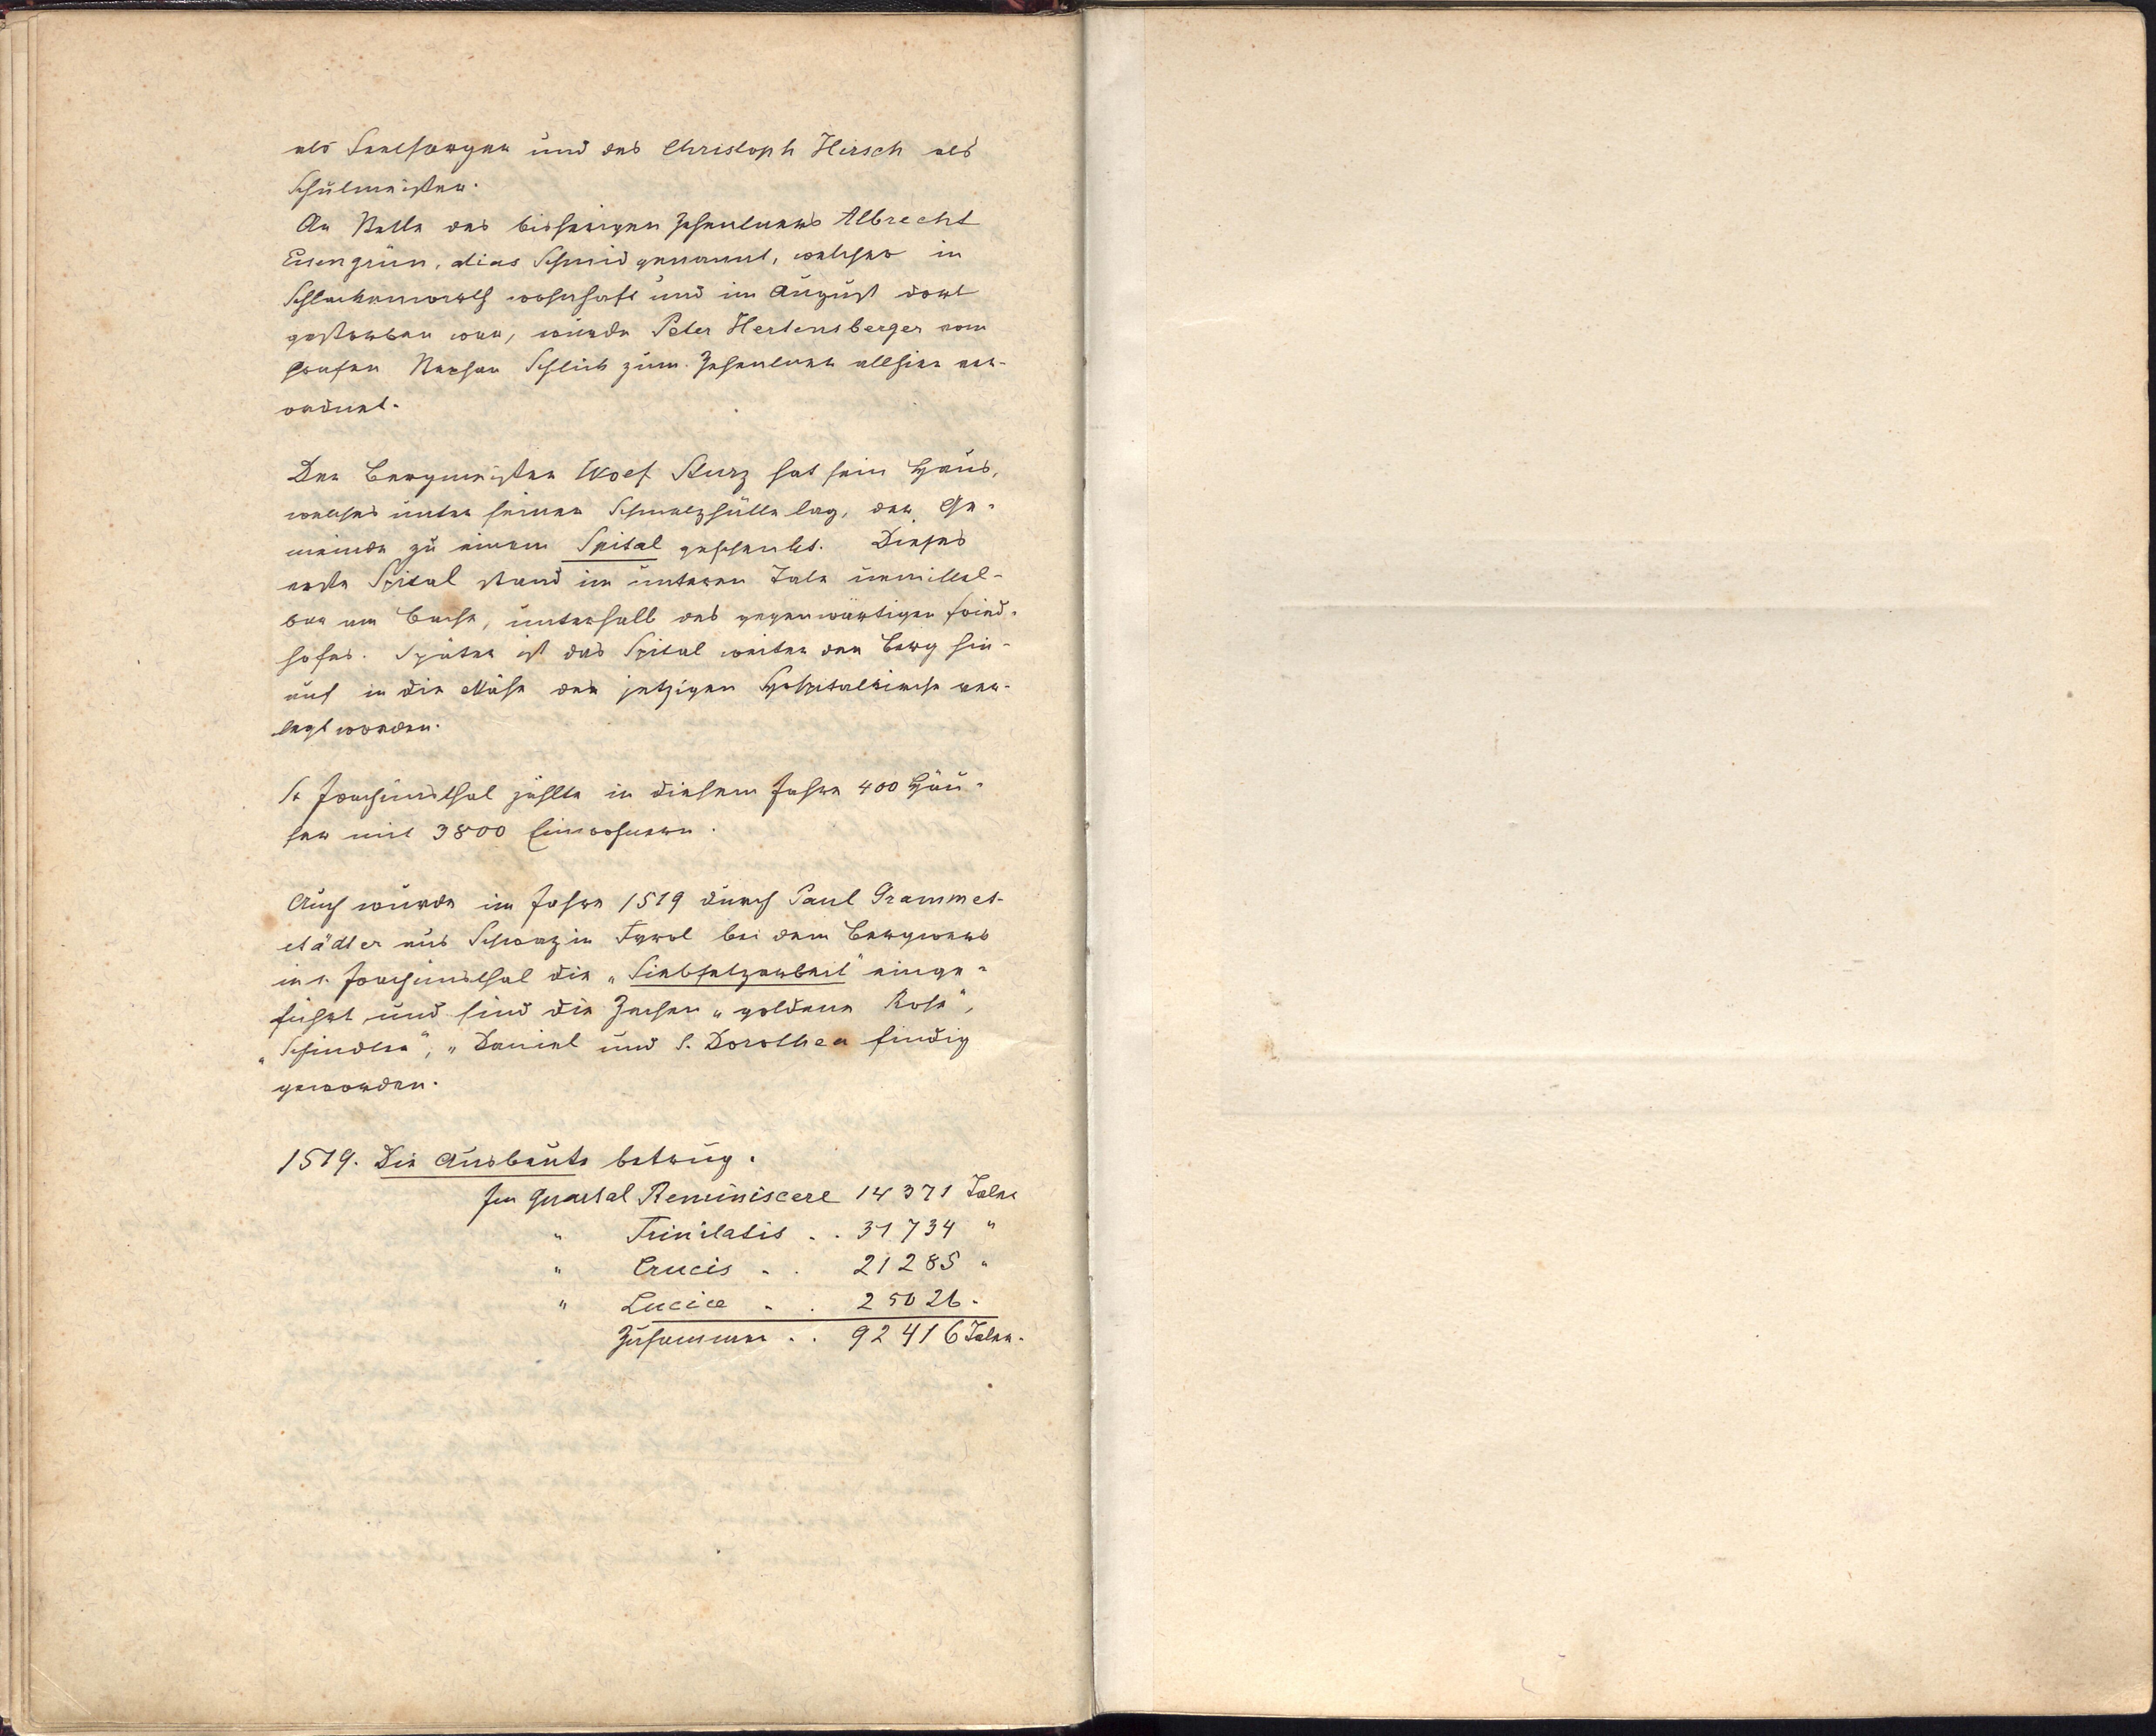 als Seelsorger und des Christoph Hirsch als
Schulmeister.
An Stelle des bisherigen Zehentners Albrecht
Eisengrün, alias Schmid genannt, welcher in
Schlackenwerth wohnhaft und im August dort
gestorben war, wurde Peter Hertensberger vom
Grafen Stephan Schlick zum Zehentner allhier ver-
ordnet.
Der Bergmeister Wolf Sturz hat sein Haus,
welches unter seiner Schmelzhütte lag, der Ge-
meinde zu einem Spital geschenkt. Dieses
erste Spital stand im unteren Tale unmittel-
bar am Bache, unterhalb des gegenwärtigen Fried-
hofes. Später ist das Spital weiter den Berg hin-
auf in die Nähe der jetzigen Hospitalkirche ver-
legt worden.
St Joachimsthal zählte in diesem Jahre 400 Häu-
ser mit 3800 Einwohnern.
Auch wurde im Jahre 1519 durch Paul Grammet-
städter aus Schwaz in Tyrol bei dem Bergwerk
in s. Joachimsthal die "Siebsetzarbeit" einge-
führt und sind die Zechen "goldene Rose",
"Schindler", "Daniel und S. Dorothea fündig
geworden.
1519. Die Ausbeute betrug.
Im Quartal Reminiscere 14371 Taler
" Trinitatis . . 31734 "
" Crucis . . 21285 "
" Luciae . . 25026.
Zusammen . . 92416 Taler.